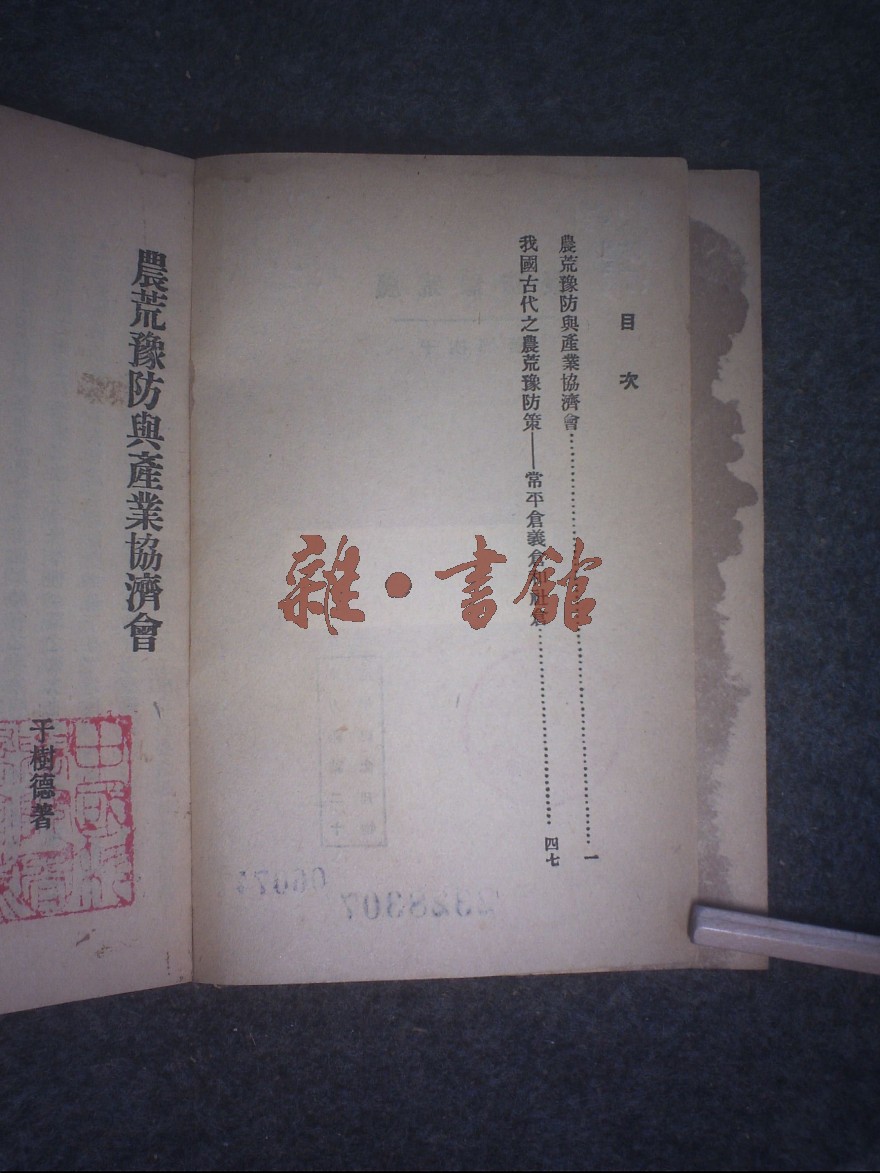 目次
農荒豫防與產業協濟會……一
我國古代之農荒豫防策——常平倉義倉和社倉……四七
農荒豫防與產業協濟會
于樹德著
雜·書館
2328307